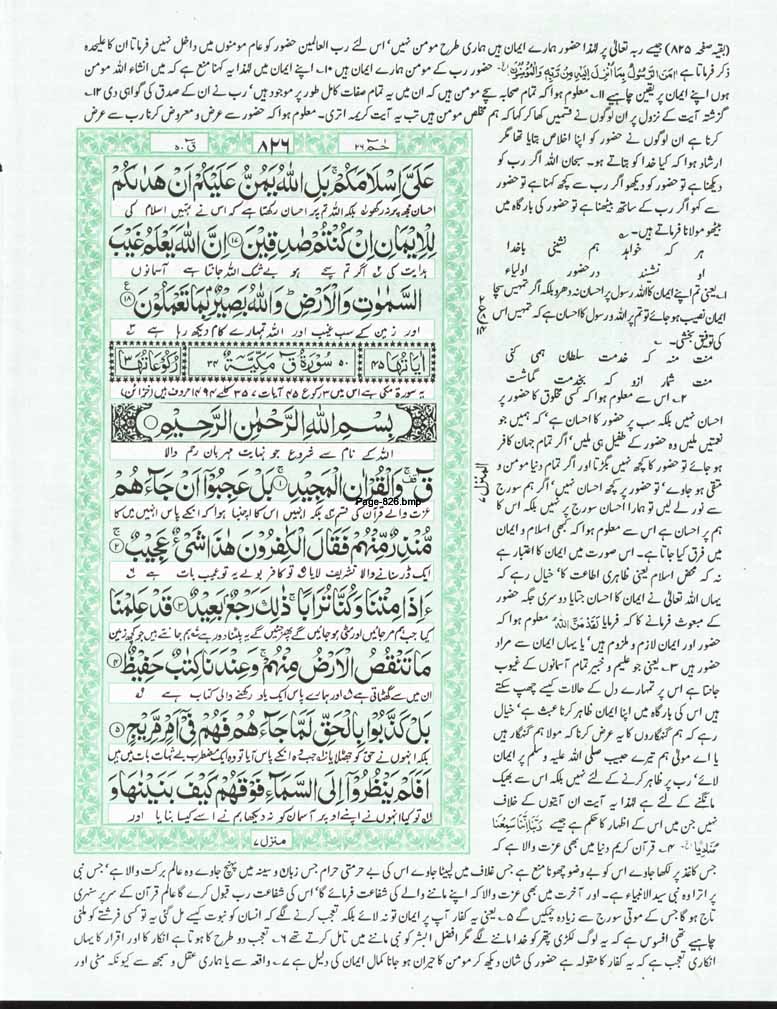 (بقیہ صفحہ ۸۲۵) جیسے ربہ تعالیٰ پر لہٰذا حضور ہمارے ایمان ہیں ہماری طرح مومن نہیں' اس لئے رب العالمین حضور کو عام مومنوں میں داخل نہیں فرماتا ان کا علیحدہ
ذکر فرماتا ہے اٰمَنَ الرَّسُوْلُ بِمَاۤ اُنْزِلَ اِلَیْهِ مِنْ رَّبِّهٖ وَالْمُؤْمِنُوْنَ حضور رب کے مومن ہمارے ایمان ہیں ۱۰۔ اپنے ایمان میں لہٰذا یہ کہنا منع ہے کہ میں انشاء اللہ مومن
ہوں اپنے ایمان پر یقین چاہیے ۱۱۔ معلوم ہوا کہ تمام صحابہ سچے مومن ہیں کہ ان میں یہ تمام صفات کامل طور پر موجود ہیں' رب نے ان کے صدق کی گواہی دی ۱۲۔
گزشتہ آیت کے نزول پر ان لوگوں نے قسمیں کھا کر کہا کہ ہم مخلص مومن ہیں تب یہ آیت کریمہ اتری۔ معلوم ہوا کہ حضور سے عرض و معروض کرنا رب سے عرض
کرنا ہے ان لوگوں نے حضور کو اپنا اخلاص بتایا تھا مگر
ارشاد ہوا کہ کیا خدا کو بتاتے ہو۔ سبحان اللہ اگر رب کو
دیکھنا ہے تو حضور کو دیکھو اگر رب سے کچھ کہنا ہے تو حضور
سے کہو اگر رب کے ساتھ بیٹھنا ہے تو حضور کی بارگاہ میں
بیٹھو مولانا فرماتے ہیں۔
ہر کہ خواہد ہم نشینی باخدا
او نشند در حضور اولیاء
۱۔ یعنی تم اپنے ایمان کا اللہ رسول پر احسان نہ دھرو بلکہ اگر تمہیں سچا
ایمان نصیب ہو جائے تو تم پر اللہ و رسول کا احسان ہے کہ تمہیں اس
کی توفیق بخشی۔
منت منہ کہ خدمت سلطان ہمی کنی
منت شمار ازو کہ بخدمت گماشت
۲۔ اس سے معلوم ہوا کہ کسی مخلوق کا حضور پر
احسان نہیں بلکہ سب پر حضور کا احسان ہے' کہ ہمیں جو
نعمتیں ملیں وہ حضور کے طفیل ہی ملیں' اگر تمام جہان کافر
ہو جائے تو حضور کا کچھ نہیں بگڑتا اور اگر تمام دنیا مومن و
متقی ہو جاوے' تو حضور پر کچھ احسان نہیں' اگر ہم سورج
سے نور لے لیں تو ہمارا احسان سورج پر نہیں بلکہ اس کا
ہم پر احسان ہے اس سے معلوم ہوا کہ کبھی اسلام و ایمان
میں فرق کیا جاتا ہے۔ اس صورت میں ایمان کا اعتبار ہے
نہ کہ محض اسلام یعنی ظاہری اطاعت کا' خیال رہے کہ
یہاں اللہ تعالیٰ نے ایمان کا احسان جتایا دوسری جگہ حضور
کے مبعوث فرمانے کا کہ فرمایا لَقَدْ مَنَّ اللّٰهُ معلوم ہوا کہ
حضور اور ایمان لازم و ملزوم ہیں' یا یہاں ایمان سے مراد
حضور ہیں ۳۔ یعنی جو علیم و خبیر تمام آسمانوں کے غیوب
جانتا ہے اس پر تمہارے دل کے حالات کیسے چھپ سکتے
ہیں اس کی بارگاہ میں اپنا ایمان ظاہر کرنا عبث ہے' خیال
رہے کہ ہم گنہگاروں کا یہ عرض کرنا کہ مولا ہم گنہگار ہیں
یا اے مولیٰ ہم تیرے حبیب صلی اللہ علیہ وسلم پر ایمان
لائے' رب پر ظاہر کرنے کے لئے نہیں بلکہ اس سے بھیک
مانگنے کے لئے ہے لہٰذا یہ آیت ان آیتوں کے خلاف
نہیں جن میں اس کے اظہار کا حکم ہے جیسے رَبَّنَاۤ اِنَّنَا سَمِعْنَا
مُنَادِیًا ۴۔ قرآن کریم دنیا میں بھی عزت والا ہے کہ
حٰمٓ ۲۶
۸۲۶
قٓ ۵۰
عَلَیَّ اِسْلَامَكُمْ ۚ بَلِ اللّٰهُ یَمُنُّ عَلَیْكُمْ اَنْ هَدٰىكُمْ
احسان مجھ پر نہ رکھو بلکہ اللہ تم پر احسان رکھتا ہے کہ اس نے تمہیں اسلام کی
لِلْاِیْمَانِ اِنْ كُنْتُمْ صٰدِقِیْنَ ﴿۱۷﴾ اِنَّ اللّٰهَ یَعْلَمُ غَیْبَ
ہدایت کی اگر تم سچے ہو بے شک اللہ جانتا ہے آسمانوں
السَّمٰوٰتِ وَالْاَرْضِ ؕ وَاللّٰهُ بَصِیْرٌۢ بِمَا تَعْمَلُوْنَ ﴿۱۸﴾
اور زمین کے سب غیب اور اللہ تمہارے کام دیکھ رہا ہے
اٰیَاتُهَا ۴۵
۵۰ سُوْرَةُ قٓ مَكِّیَّةٌ ۳۴
رُكُوْعَاتُهَا ۳
یہ سورۃ مکی ہے اس میں ۳ رکوع ۴۵ آیات ۳۵۷ کلمے ۱۴۹۴ حروف ہیں (خزائن)
بِسْمِ اللّٰهِ الرَّحْمٰنِ الرَّحِیْمِ
اللہ کے نام سے شروع جو نہایت مہربان رحم والا
قٓ ۚ وَالْقُرْاٰنِ الْمَجِیْدِ ﴿۱﴾ بَلْ عَجِبُوْۤا اَنْ جَآءَهُمْ
عزت والے قرآن کی قسم بلکہ انہیں اس کا اچنبا ہوا کہ انکے پاس انہیں میں کا
Page-826.bmp
مُّنْذِرٌ مِّنْهُمْ فَقَالَ الْكٰفِرُوْنَ هٰذَا شَیْءٌ عَجِیْبٌ ﴿۲﴾
ایک ڈر سنانے والا تشریف لایا تو کافر بولے یہ تو عجیب بات ہے
ءَاِذَا مِتْنَا وَكُنَّا تُرَابًا ۚ ذٰلِكَ رَجْعٌۢ بَعِیْدٌ ﴿۳﴾ قَدْ عَلِمْنَا
کیا جب ہم مر جائیں اور مٹی ہو جائیں گے پھر جئیں گے یہ پلٹنا دور ہے ہم جانتے ہیں جو کچھ زمین
مَا تَنْقُصُ الْاَرْضُ مِنْهُمْ ۚ وَعِنْدَنَا كِتٰبٌ حَفِیْظٌ ﴿۴﴾
ان میں سے گھٹاتی ہے اور ہمارے پاس ایک یاد رکھنے والی کتاب ہے
بَلْ كَذَّبُوْا بِالْحَقِّ لَمَّا جَآءَهُمْ فَهُمْ فِیْۤ اَمْرٍ مَّرِیْجٍ ﴿۵﴾
بلکہ انہوں نے حق کو جھٹلایا جب وہ انکے پاس آیا تو وہ ایک مضطرب بے ثبات بات میں ہیں
اَفَلَمْ یَنْظُرُوْۤا اِلَی السَّمَآءِ فَوْقَهُمْ كَیْفَ بَنَیْنٰهَا وَ
تو کیا انہوں نے اپنے اوپر آسمان کو نہ دیکھا ہم نے اسے کیسا بنایا اور
منزل ۷
المنزل ۷
جس کاغذ پر لکھا جاوے اس کو بے وضو چھونا منع ہے جس غلاف میں لپیٹا جاوے اس کی بے حرمتی حرام جس زبان و سینہ میں پہنچ جاوے وہ عالم برکت والا ہے' جس نبی
پر اترا وہ نبی سید الانبیاء ہے۔ اور آخرت میں بھی عزت والا کہ اپنے ماننے والے کی شفاعت فرمائے گا' اس کی شفاعت رب قبول کرے گا عالم قرآن کے سر پر سنہری
تاج ہو گا جس کے موتی سورج سے زیادہ چمکیں گے ۵۔ یعنی یہ کفار آپ پر ایمان تو نہ لائے بلکہ تعجب کرنے لگے کہ انسان کو نبوت کیسے مل گئی یہ تو کسی فرشتے کو ملنی
چاہیے تھی افسوس ہے کہ یہ لوگ لکڑی پتھر کو خدا ماننے لگے مگر افضل البشر کو نبی ماننے میں تامل کرتے تھے ۶۔ تعجب دو طرح کا ہوتا ہے انکار کا اور اقرار کا یہاں
انکاری تعجب ہے کہ یہ کفار کا مقولہ ہے حضور کی شان دیکھ کر مومن کا حیران ہو جانا کمال ایمان کی دلیل ہے ۷۔ واقعہ سے یا ہماری عقل و سمجھ سے کیونکہ مٹی اور